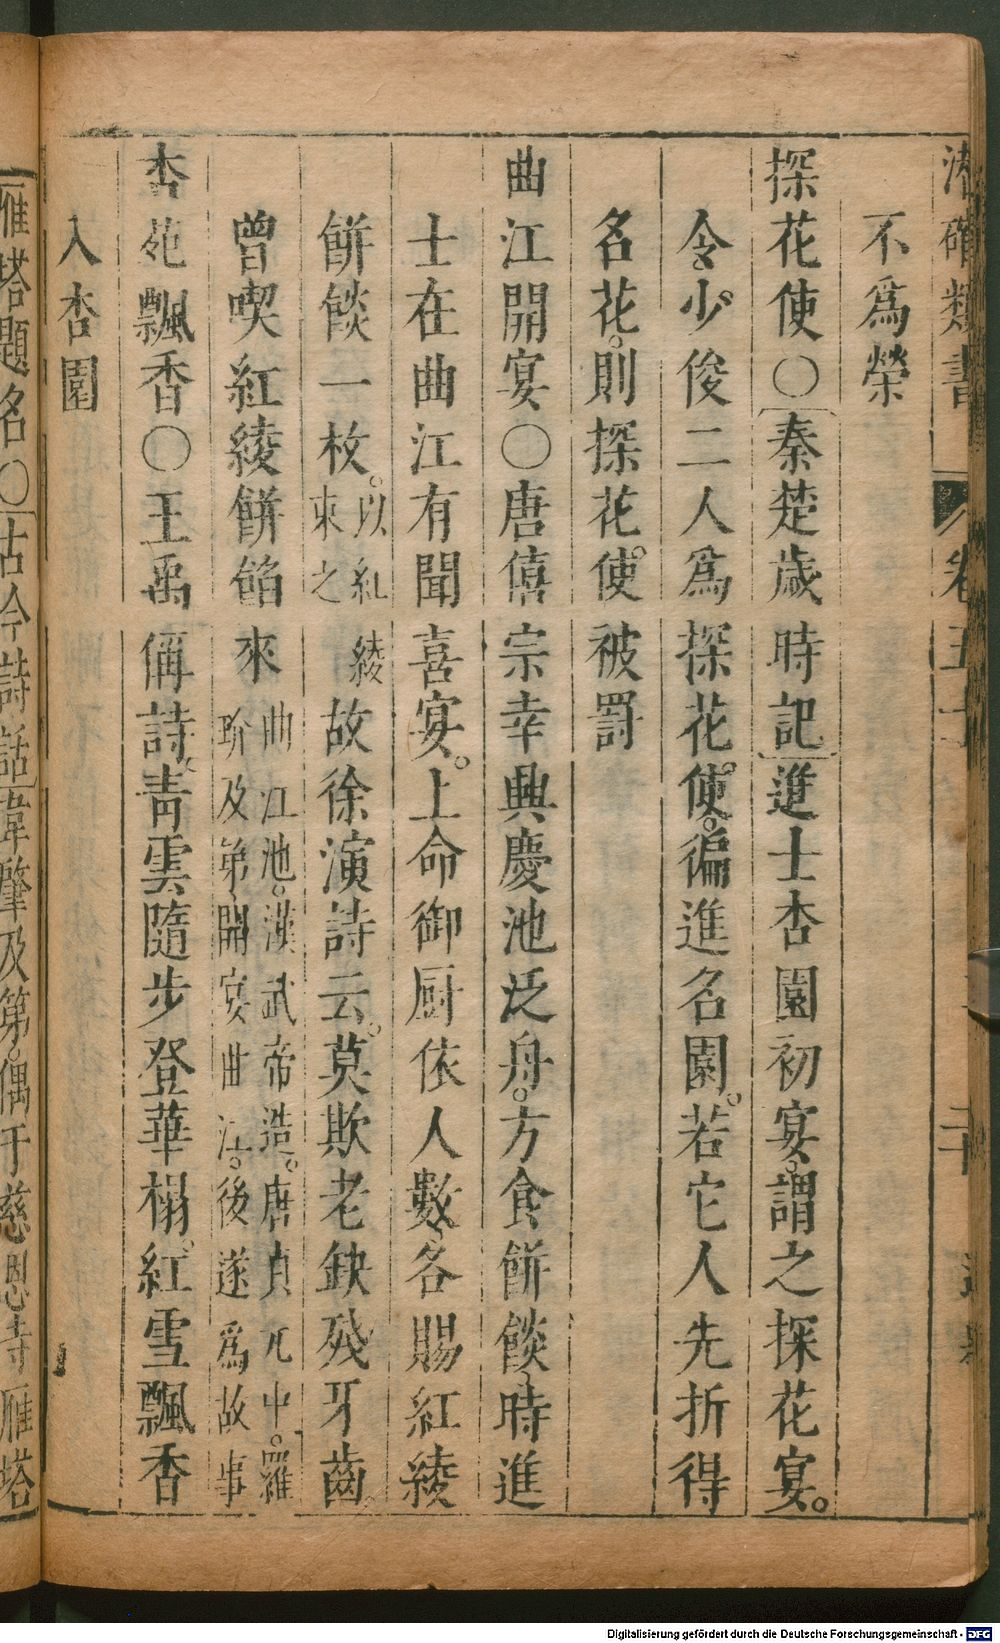 潛確類書
卷五十
二十
不爲榮
探花使○秦楚歲時記進士杏園初宴。謂之探花宴。
令少俊二人爲探花使。徧進名園。若它人先折得
名花。則探花使被罰
曲江開宴○唐僖宗幸興慶池泛舟。方食餅餤。時進
士在曲江有聞喜宴。上命御厨依人數。各賜紅綾
餅餤一枚。以紅綾束之故徐演詩云。莫欺老缺殘牙齒。
曾喫紅綾餅餡來曲江池。漢武帝造。唐貞元中。羅玠及第。開宴曲江。後遂爲故事
杏苑飄香○王禹偁詩、靑雲隨步登華榻。紅雪飄香
入杏園
雁塔題名○古今詩話韋肇及第。偶于慈恩寺雁塔
Digitalisierung gefördert durch die Deutsche Forschungsgemeinschaft - DFG